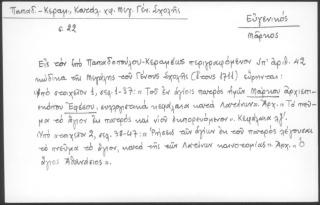 Παπαδ.-Κεραμ., Κατάλ. χφ. Μεγ. Γέν. Σχολῆς
Εὐγενικός
Μᾶρκος
σ. 22
Εἰς τὸν ὑπὸ Παπαδοπούλου-Κεραμέως περιγραφόμενον ὑπ' ἀριθ. 42
κώδικα τῆς Μεγάλης τοῦ Γένους Σχολῆς (ἔτους 1711) εὕρηνται:
Ὑπὸ στοιχεῖον 1, σελ. 1-37: «Τοῦ ἐν ἁγίοις πατρὸς ἡμῶν Μάρκου ἀρχιεπι-
σκόπου Ἐφέσου, συλλογιστικὰ κεφάλαια κατὰ Λατίνων». Ἀρχ. «Τὸ πνεῦ-
μα τὸ ἅγιον ἐκ πατρὸς καὶ υἱοῦ ἐκπορευόμενον». Κεφάλαια
Ὑπὸ στοιχεῖον 2, σελ. 38-47: «Ῥήσεις τῶν ἁγίων ἐκ τοῦ πατρὸς λέγουσαι
τὸ πνεῦμα τὸ ἅγιον, κατὰ τῆς τῶν Λατίνων καινοτομίας». Ἀρχ. «Ὁ
ἅγιος Ἀθανάσιος».